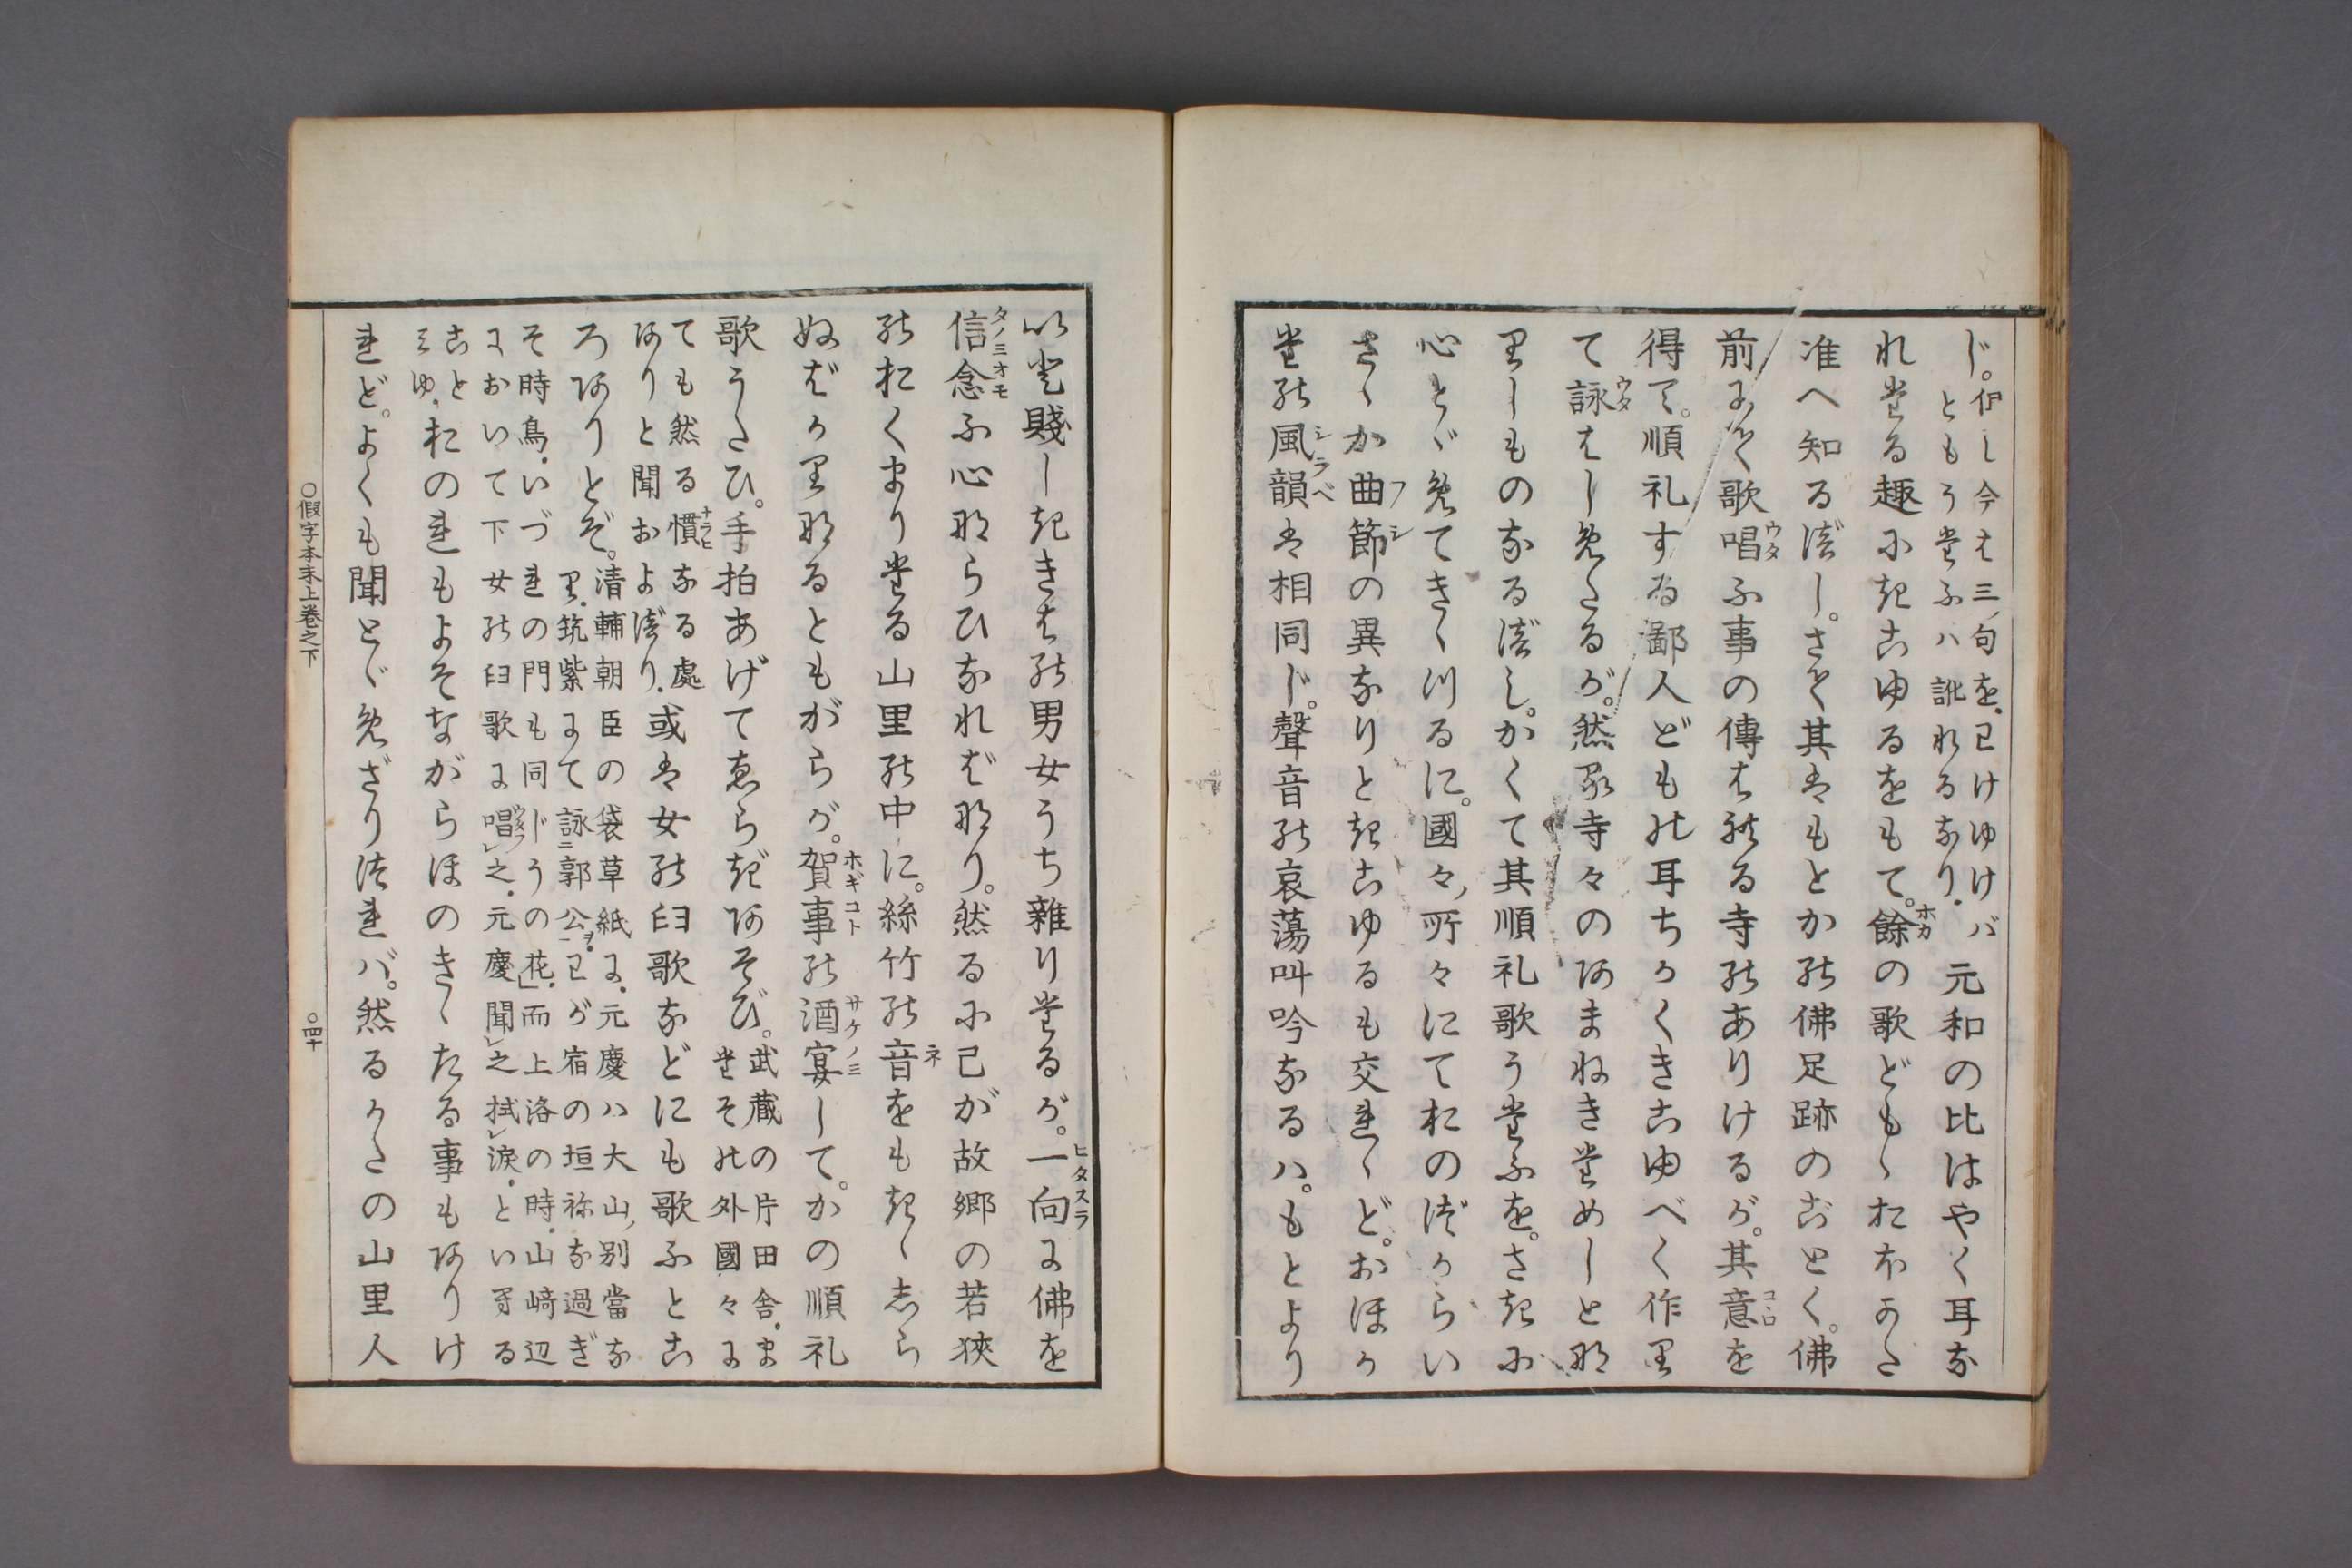 じ。伊し今は三ノ句を.わけゆけバ
ともうたふハ訛れるなり.元和の比はやく耳な
れたる趣にきこゆるをもて。餘の歌ども〻おほかた
准へ知るべし。さて其はもとか能佛足跡のごとく。佛
前にて歌唱ふ事の傳はれる寺能ありけるが。其意を
得て。順礼する鄙人どもの耳ちかくきこゆべく作り
て詠はしめたるが。然る寺々のあまねきためしとな
りしものなるべし。かくて其順礼歌うたふを。さきに
心とゞめてきゝつるに。國々所々にておのづからい
さゝか曲節の異なりときこゆるも交れゝど。おほか
た能風韻は相同じ。聲音能哀蕩叫吟なるハ。もとより
いと賤しききは能男女うち雜りたるが。一向に佛を
信念ふ心ならひなればなり。然るに己が故郷の若狹
能おくまりたる山里能中に。絲竹能音をもきゝしら
ぬばかりなるともがらが。賀事能酒宴して。かの順礼
歌うたひ。手拍あげてゑらぎあそび。武蔵の片田舎.ま
たその外國々に
ても然る慣なる處
ありと聞およべり.或は女能臼歌などにも歌ふとこ
ろありとぞ。清輔朝臣の袋草紙に.元慶ハ大山ノ別當な
り.筑紫にて詠ニ郭公一ヲ.わが宿の垣祢な過ぎ
そ時鳥.いづれの門も同じうの花」.而上洛の時.山﨑辺
において下女能臼歌に唱レ之.元慶聞レ之拭レ涙.といへる
こと
みゆ.おのれもよそながらほのきゝたる事もありけ
れど。よくも聞とゞめざりつれバ。然るかたの山里人
○假字本末上巻之下
○四十